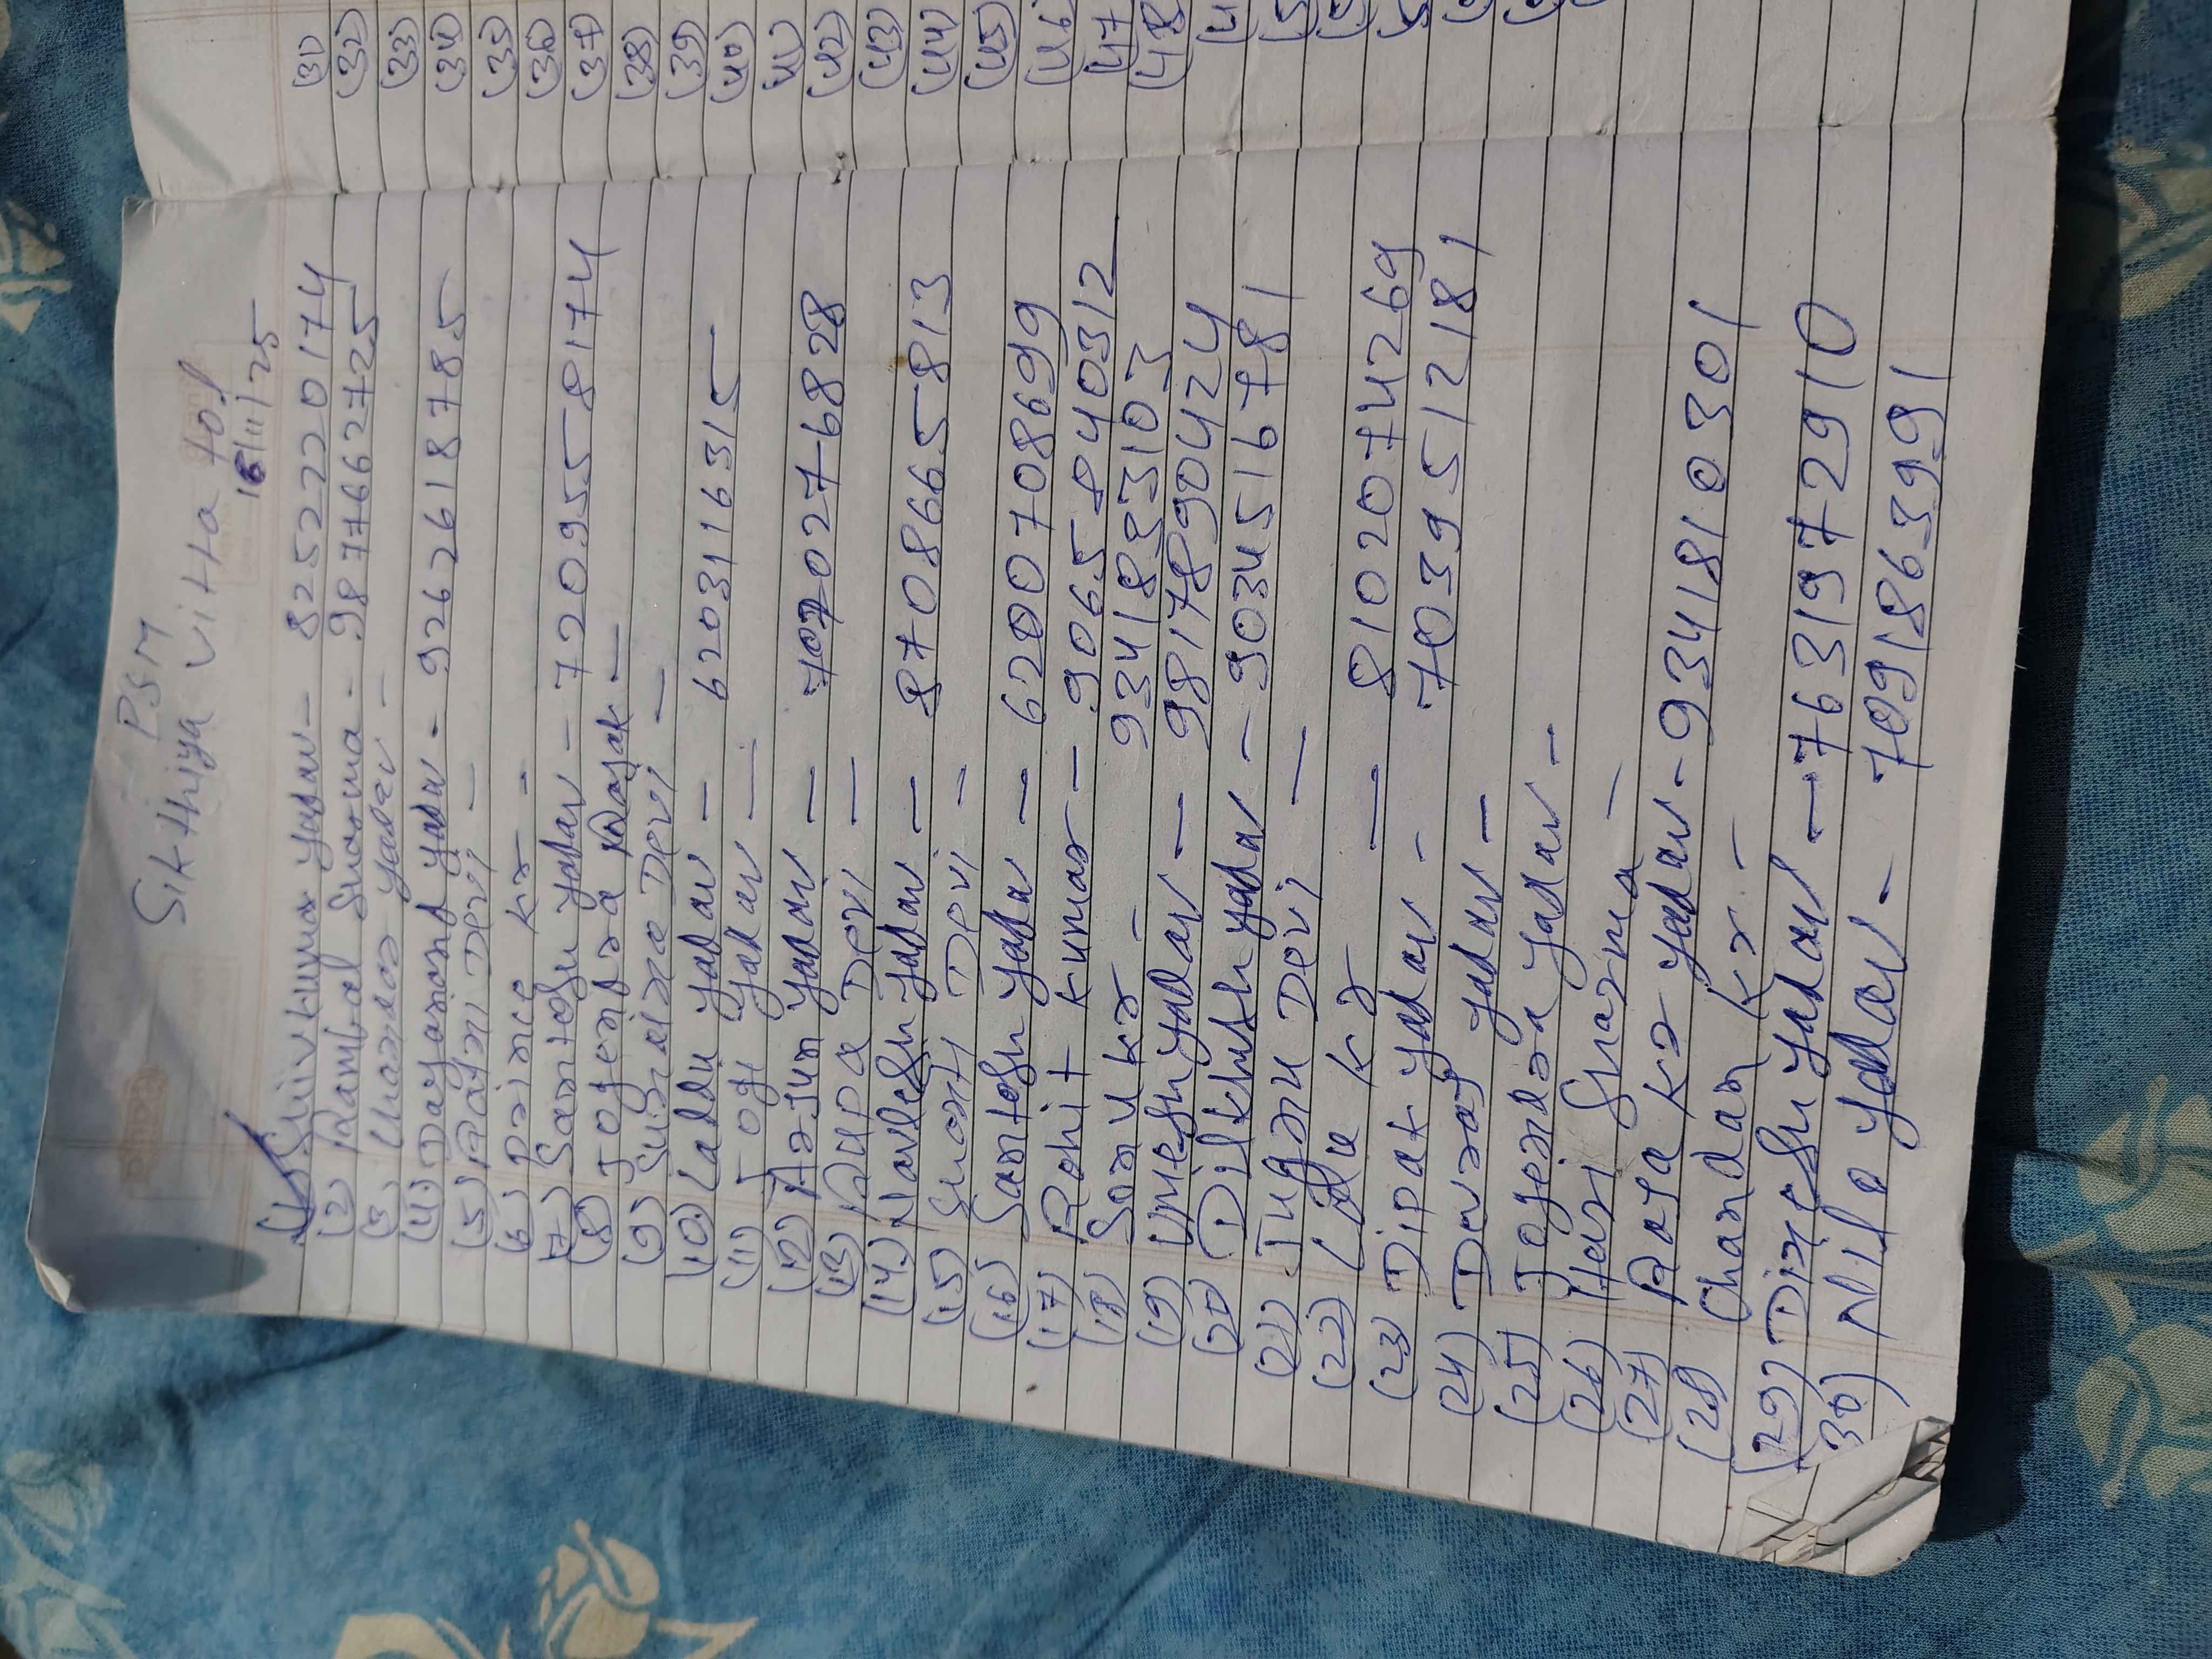 PSM
Sikthiya Vitta tol
16/11/25
(1) Shivkumar Yadav - 8252220174
(2) Rambal Sharma - 9877662725
(3) Yadav -
(4) Dayanand Yadav - 9262618785
(5) Devi -
(6) Prince Kr -
(7) Santosh Yadav - 7209558174
(8) Jogendra Nayak -
(9) Devi -
(10) Laddu Yadav - 6203116315
(11) Jogi Yadav -
(12) Arjun Yadav - 7070276828
(13) Devi -
(14) Navlesh Yadav - 8708665813
(15) Shanti Devi -
(16) Santosh Yadav - 6200708699
(17) Rohit Kumar - 9065840312
(18) Sonu Kr - 934183103
(19) Umesh Yadav - 9817890424
(20) Dilkhush Yadav - 9034516781
(21) Jugnu Devi -
(22) Kr - 8102074269
(23) Dipak Yadav - 7039512181
(24) Devraj Yadav -
(25) Jogendra Yadav -
(26) Hari Sharma -
(27) Raja Kr Yadav - 9341810301
(28) Chandan Kr -
(29) Dinesh Yadav - 7631972910
30) Yadav - 7091863991
(31)
(32)
(33)
(34)
(35)
(36)
(37)
(38)
(39)
(40)
(41)
(42)
(43)
(44)
(45)
(46
(47
(48